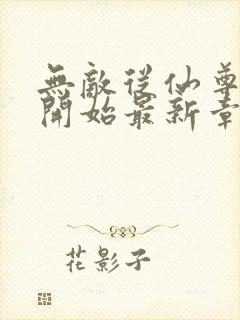 無敵從仙尊
開始最新章
花影子